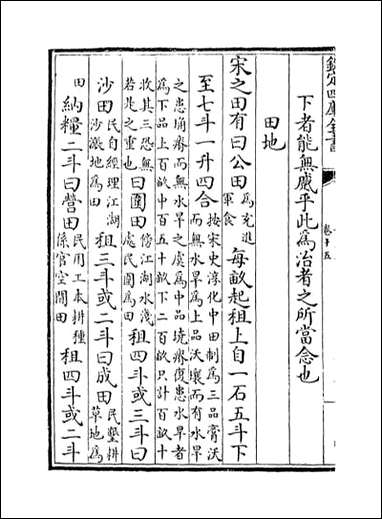 欽定四庫全書
卷十五
下者能無戚乎此為治者之所當念也
田地
宋之田有曰公田為充進軍食每畝起租上自一石五斗下
至七斗一升四合按宋史淳化中田制為三品膏沃而無水旱為上品沃壤而有水旱
之患埆瘠而無水旱之虞為中品墝瘠復患水旱者為下品上百畝中百五十畝下二百畝只計百畝十
收其三恐無若是之重也曰圍田傍江湖水淺處民圍為田租四斗或三斗曰
沙田民自經理江湖沙漲地為田租三斗或二斗曰成田民墾耕草地為
田納糧二斗曰營田民用工本耕種係官空閒田租四斗或二斗